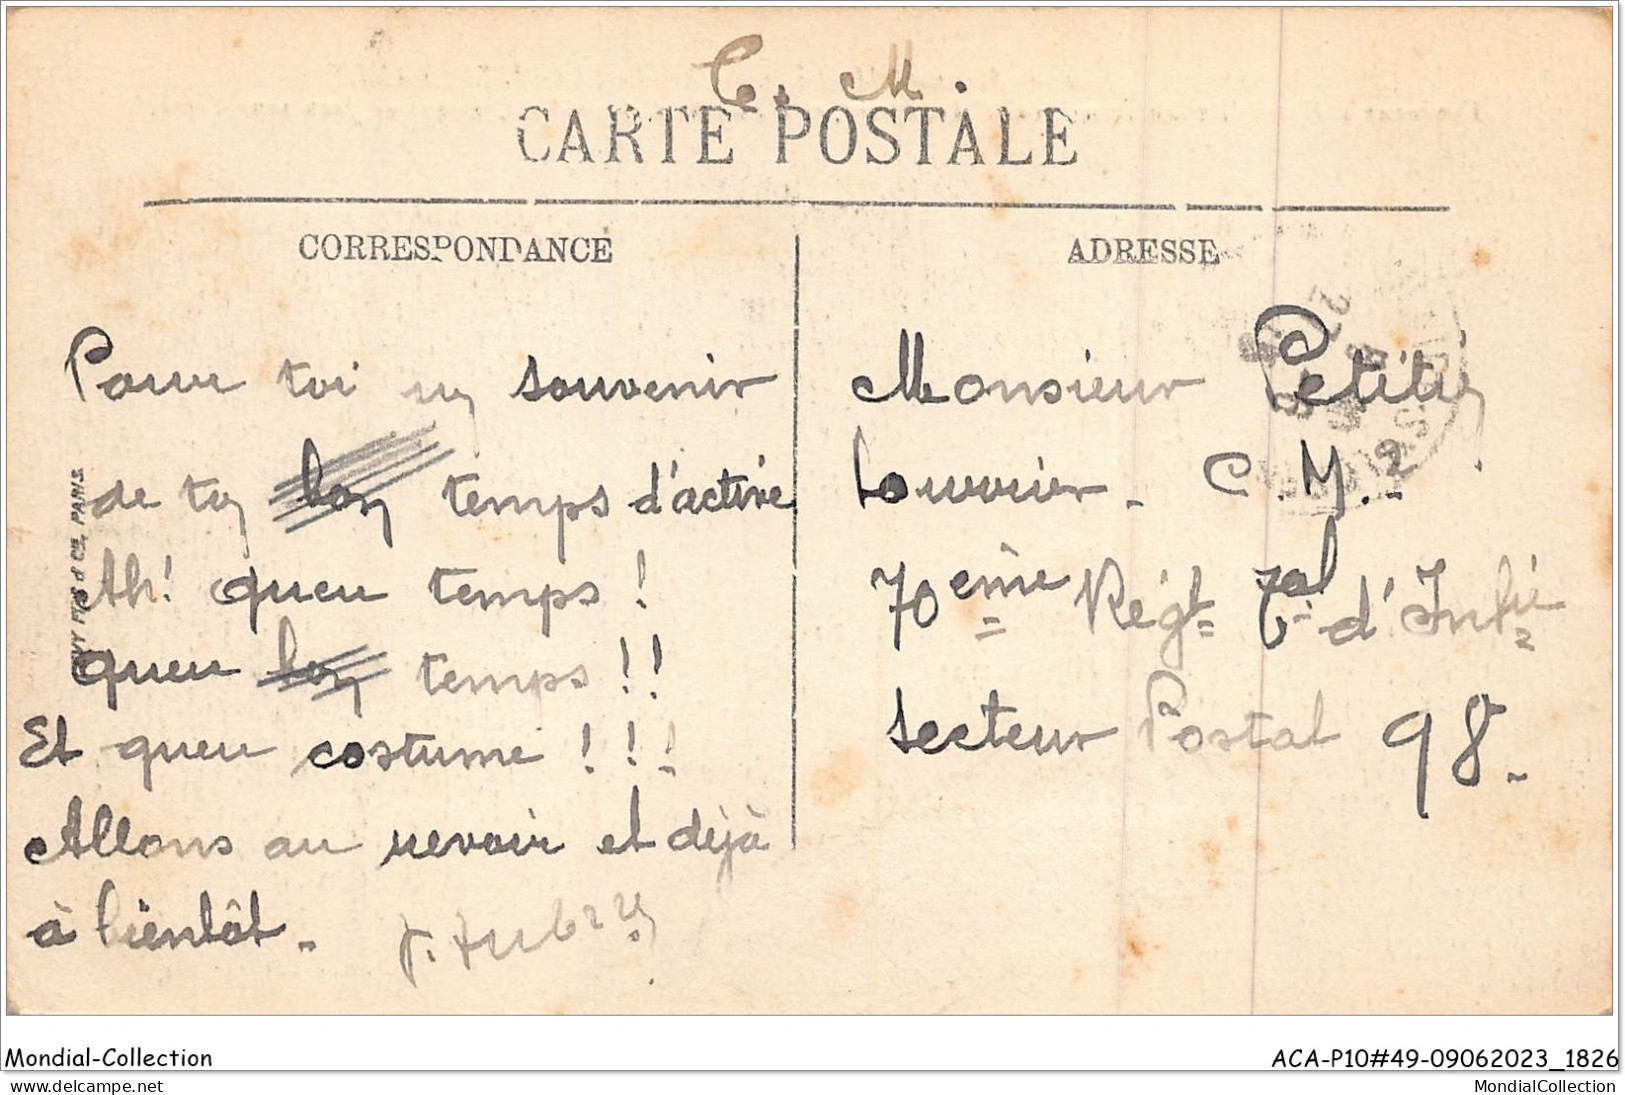 C. M.
CARTE POSTALE
CORRESPONDANCE
ADRESSE
Pour toi un souvenir
de ton bon temps d'active
Ah! queu temps !
queu bon temps !!
Et queu costume !!!
Allons au revoir et déjà
à bientôt.
Monsieur Petitin
C.M.
70ème Régt Tal d'Infie
Secteur Postal 98.
PARIS
Mondial-Collection
ACA-P10#49-09062023_1826
MondialCollection